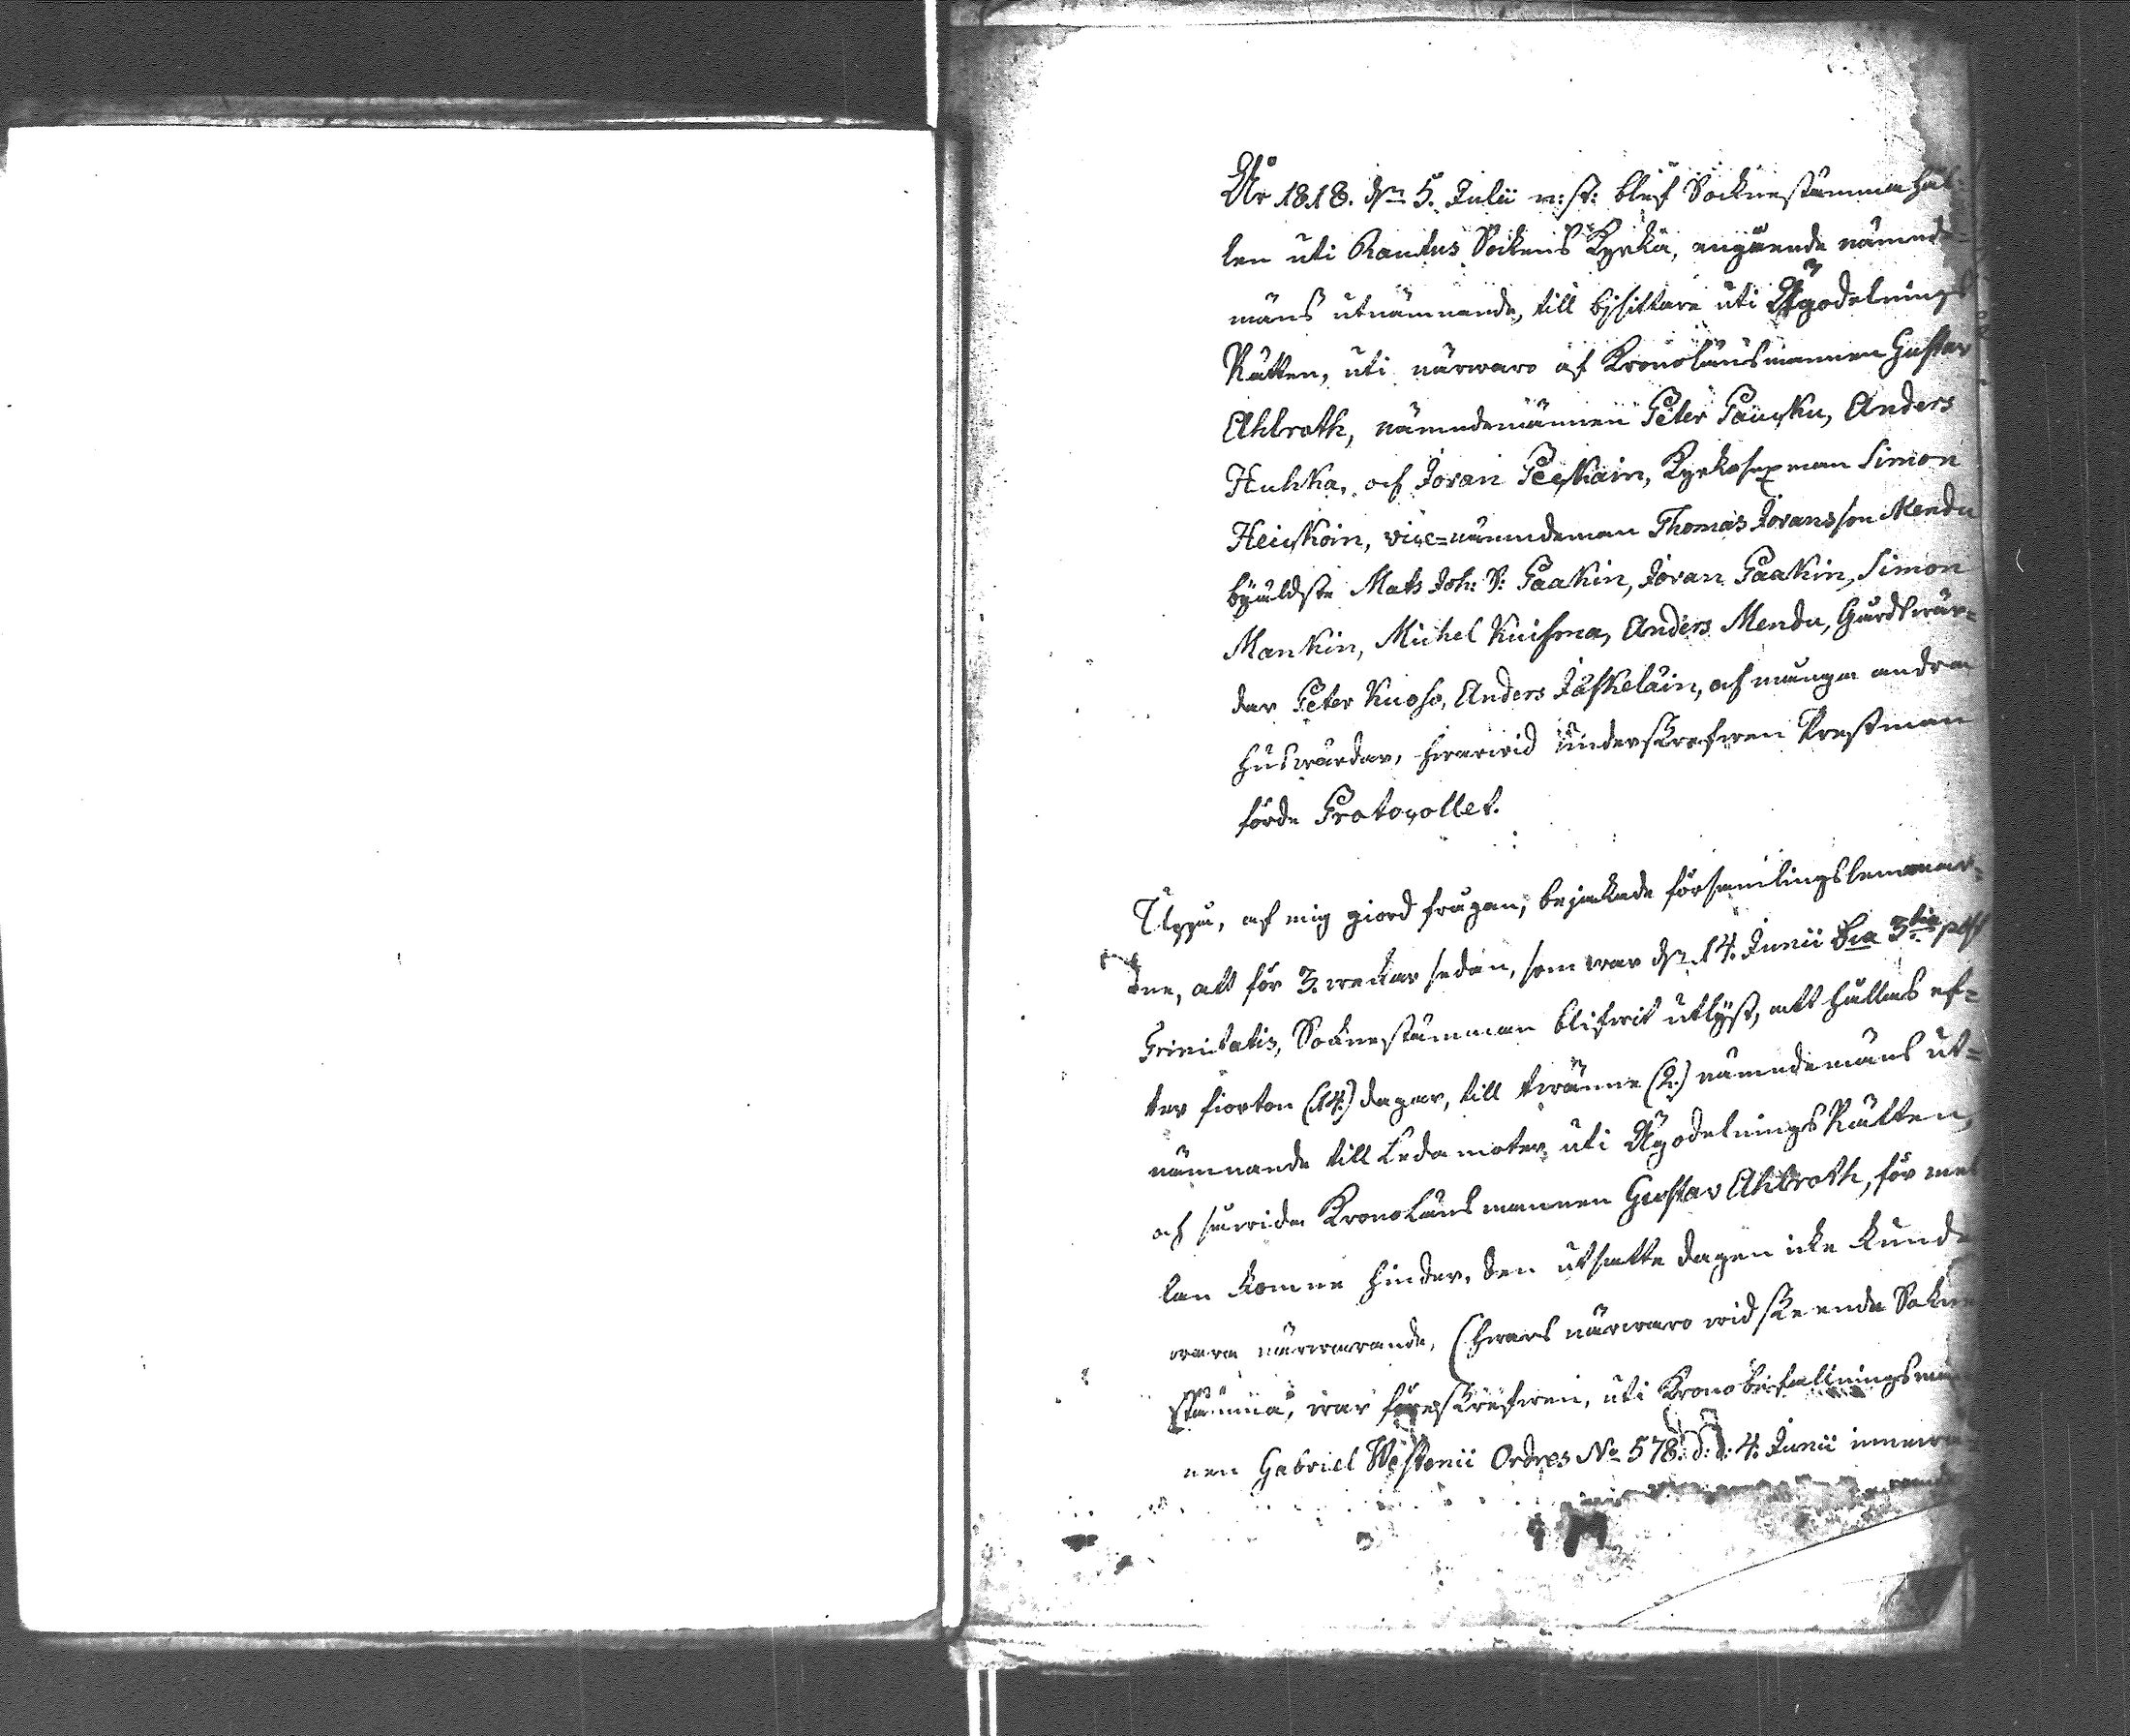 År 1818. dn 5. Julii n: st: blef Socknestämma hål-
len uti Rautus Sockens Kyrka, angående nämnde-
mäns utnämnande, till bisittare uti Ägodelnings
Rätten, uti närwaro af Kronolänsmannen Gustav
Ahlroth, nämndemännen Peter Paucku, Anders
Huhka, och Jöran Peckain, Kyrkosexman Simon
Heickoin, vice=nämndeman Thomas Jöransson Mendu
byäldste Mats Joh: S: Paakin, Jöran Paakin, Simon
Mankin, Michel Kuisma, Anders Mendu, Gårdswär=
dar Peter Kuoso, Anders Jäskeläin, och många andra
huswärdar, hwarwid underskrefwen Prestman
förde Protocollet.
Uppå, af mig giord frågan, bejakade församlingslemmar=
dne, att för 3. weckor sedan, som war dn 14. Junii Dca 3tia post
Trinitatis, Socknestämman blifwit utlyst, att hållas ef=
ter fiorton (14.) dagar, till twänne (2.) nämndemäns ut=
nämnande till Ledamoter uti ÄgodelningsRätten,
och såwida Kronolänsmannen Gustav Ahlroth, för mel
lan komne hinder, den utsatte dagen icke kunde
wara närwarande, (hwars närwaro wid skeende Sockne
stämma, war föreskrefwen, uti Kronobefallningsman
nen Gabriel Westenii Ordres No 578. d: d: 4. Junii innewa-
rande